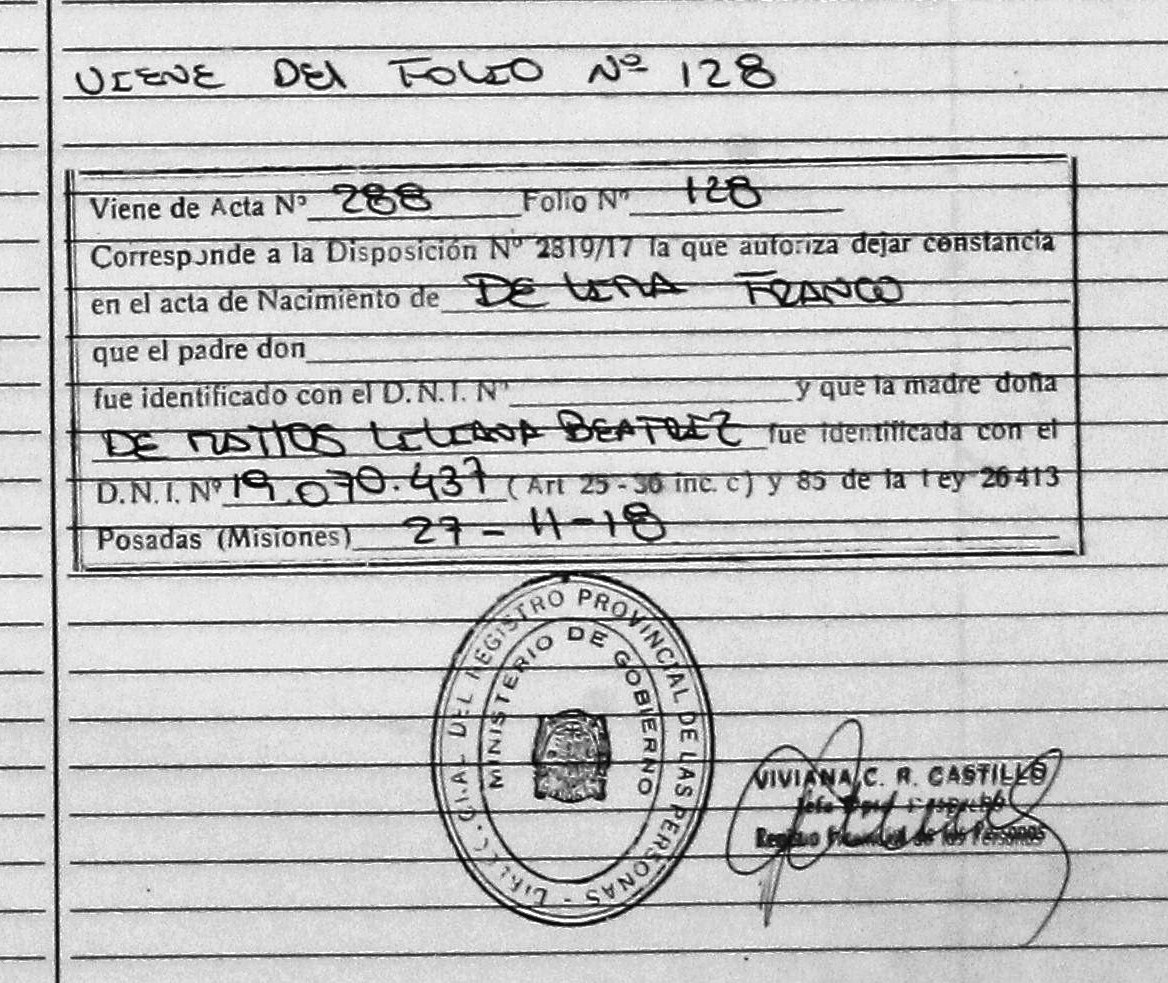 VIENE DEL FOLIO Nº 128
Viene de Acta Nº 288 Folio Nº 128
Corresponde a la Disposición Nº 2819/17 la que autoriza dejar constancia
en el acta de Nacimiento de DE LIMA FRANCO
que el padre don
fue identificado con el D.N.I. Nº y que la madre doña
DE MATTOS LILIANA BEATRIZ fue identificada con el
D.N.I. Nº 19.070.437 (Art 25 - 36 inc. c) y 85 de la Ley 26413
Posadas (Misiones) 27 - 11 - 18
GRAL DEL REGISTRO PROVINCIAL DE LAS PERSONAS
MINISTERIO DE GOBIERNO
VIVIANA C. R. CASTILLO
Jefe Dpto
Registro Provincial de las Personas